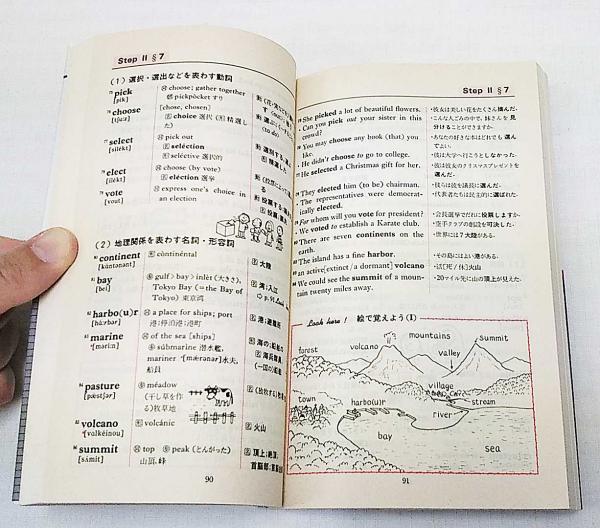 Step II §7
(1) 選択・選出などを表わす動詞
pick
[pik]
choose; gather together
pickpòcket すり
choose
[tʃuːz]
[chose, chosen]
choice 選択
select
[silékt]
pick out
seléction
seléctive 選択的
elect
[ilékt]
choose (by vote)
eléction 選挙
vote
[vout]
express one's choice in
an election
(2) 地理関係を表わす名詞・形容詞
continent
[kɑ́ntənənt]
continéntal
大陸
bay
[bei]
gulf > bay > inlèt (大きさ),
Tokyo Bay (=the Bay of
Tokyo) 東京湾
harbo(u)r
[hɑ́ːrbər]
a place for ships; port
港;停泊港;港町
marine
[məríːn]
of the sea [ships]
súbmarine 潜水艦,
mariner [mǽrənər] 水夫,
船員
pasture
[pǽstʃər]
méadow
(干し草を作
る)牧草地
volcano
[vɑlkéinou]
volcánic
火山
summit
[sʌ́mit]
top peak (とんがった)
山頂,峰
90
Step II §7
She picked a lot of beautiful flowers.
Can you pick out your sister in this
crowd?
You may choose any book (that) you
like.
He didn't choose to go to college.
He selected a Christmas gift for her.
They elected him (to be) chairman.
The representatives were democrat-
ically elected.
For whom will you vote for president?
We voted to establish a Karate club.
There are seven continents on the
earth.
The island has a fine harbor.
an active[extinct / a dormant] volcano
We could see the summit of a moun-
tain twenty miles away.
・彼女は美しい花をたくさん摘んだ.
・こんな人ごみの中で,妹さんを見
分けることができますか.
・あなたの好きな本はどれでも選ん
でよい.
・彼は大学へ行こうとしなかった.
・彼は彼女のクリスマスプレゼントを
選んだ.
・彼らは彼を議長に選んだ.
・代表者たちは民主的に選ばれた.
・会長選挙でだれに投票しますか.
・空手クラブの創設を可決した.
・世界には7大陸がある.
・その島にはよい港がある.
・活[死/休]火山
・20マイル先に山の頂上が見えた.
Look here! 絵で覚えよう(1)
forest
volcano
mountains
summit
valley
village
town
harbo(u)r
stream
river
bay
sea
91